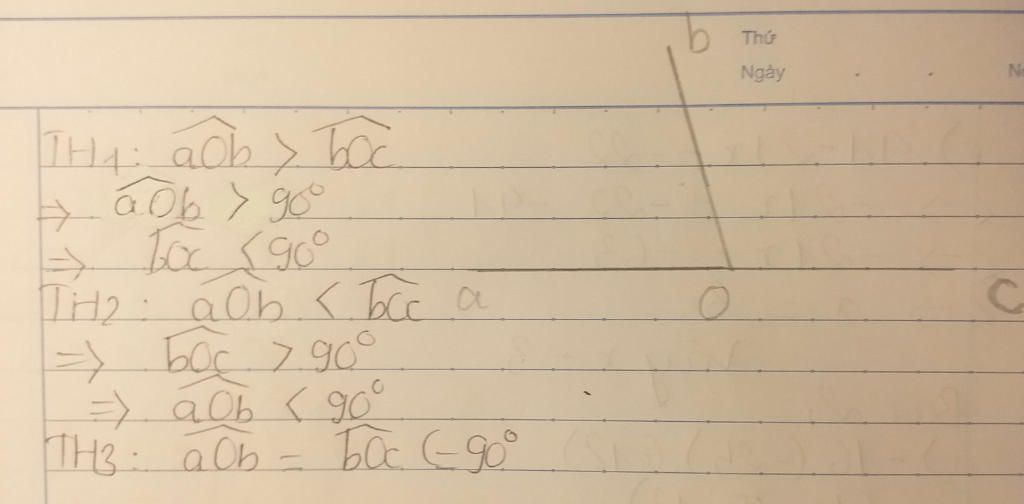 b
Thứ
Ngày
TH1: aOb > bOc
=> aOb > 90°
=> bOc < 90°
TH2: aOb < bOc
a O c
=> bOc > 90°
=> aOb < 90°
TH3: aOb = bOc (= 90°